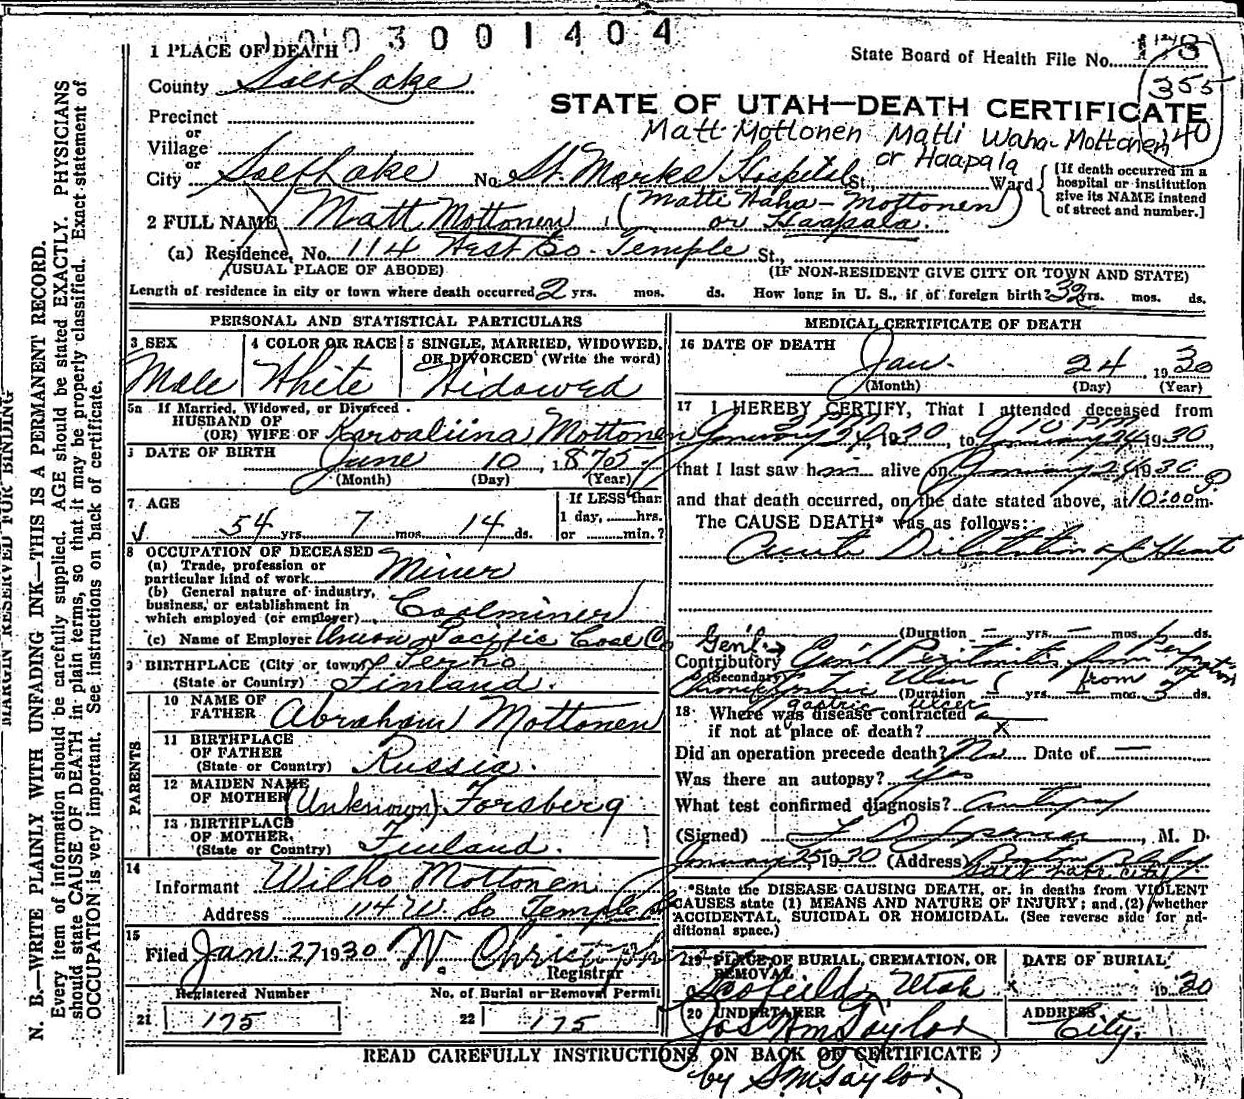 003001404
1 PLACE OF DEATH
State Board of Health File No.
County Salt Lake
355
STATE OF UTAH—DEATH CERTIFICATE
Precinct
Matt Mottonen Matti Waha-Mottonen
40
or
Village
or Haapala
or
City Salt Lake No. St. Marks Hospital (St., Ward
[If death occurred in a hospital or institution give its NAME instead of street and number.]
2 FULL NAME Matt Mottonen (Matti Waha-Mottonen
or Haapala.)
(a) Residence, No. 114 West So. Temple St.,
(USUAL PLACE OF ABODE) (IF NON-RESIDENT GIVE CITY OR TOWN AND STATE)
Length of residence in city or town where death occurred 2 yrs. mos. ds. How long in U. S., if of foreign birth? 32 yrs. mos. ds.
PERSONAL AND STATISTICAL PARTICULARS
3 SEX
Male
4 COLOR OR RACE
White
5 SINGLE, MARRIED, WIDOWED, OR DIVORCED (Write the word)
Widowed
5a If Married, Widowed, or Divorced
HUSBAND OF
(OR) WIFE OF Karoaliina Mottonen
DATE OF BIRTH June 10, 1875
(Month) (Day) (Year)
7 AGE
54 yrs. 7 mos. 14 ds.
If LESS than
1 day, hrs.
or min.?
8 OCCUPATION OF DECEASED
(a) Trade, profession or
particular kind of work Miner
(b) General nature of industry,
business, or establishment in
which employed (or employer) Coalminer
(c) Name of Employer Union Pacific Coal Co
9 BIRTHPLACE (City or town)
(State or Country) Finland.
PARENTS
10 NAME OF
FATHER Abraham Mottonen
11 BIRTHPLACE
OF FATHER
(State or Country) Russia.
12 MAIDEN NAME
OF MOTHER (Unknown) Forsberg
13 BIRTHPLACE
OF MOTHER.
(State or Country) Finland.
14
Informant Wilho Mottonen
Address 114 W. So Temple
15
Filed Jan. 27 1930 W.
Registrar
Registered Number
21 175
No. of Burial or Removal Permit
22 175
MEDICAL CERTIFICATE OF DEATH
16 DATE OF DEATH
Jan. 24, 1930
(Month) (Day) (Year)
17 I HEREBY CERTIFY, That I attended deceased from
January 24 1930, to January 24 1930,
that I last saw him alive on January 24 1930
and that death occurred, on the date stated above, at 10:00 P m.
The CAUSE DEATH* was as follows:
Acute Dilatation of Heart
(Duration — yrs. — mos. ds.
Gen'l
Contributory Gen'l Peritonitis from
(Secondary)
Chronic Gastric Ulcer (Duration yrs. mos. 3 ds.
gastric ulcer
18 Where was disease contracted
if not at place of death? X
Did an operation precede death? No Date of —
Was there an autopsy? Yes
What test confirmed diagnosis? Autopsy
(Signed) , M. D.
January 25 1930 (Address)
Salt Lake City
*State the DISEASE CAUSING DEATH, or, in deaths from VIOLENT
CAUSES state (1) MEANS AND NATURE OF INJURY; and (2) whether
ACCIDENTAL, SUICIDAL OR HOMICIDAL. (See reverse side for ad-
ditional space.)
19 PLACE OF BURIAL, CREMATION, OR
REMOVAL
Scofield Utah
DATE OF BURIAL
X 1930
20 UNDERTAKER
Jos Wm Taylor
ADDRESS
City.
READ CAREFULLY INSTRUCTIONS ON BACK OF CERTIFICATE
by S.M. Taylor
MARGIN RESERVED FOR BINDING
N. B.—WRITE PLAINLY WITH UNFADING INK—THIS IS A PERMANENT RECORD.
Every item of information should be carefully supplied. AGE should be stated EXACTLY. PHYSICIANS
should state CAUSE OF DEATH in plain terms, so that it may be properly classified. Exact statement of
OCCUPATION is very important. See instructions on back of certificate.